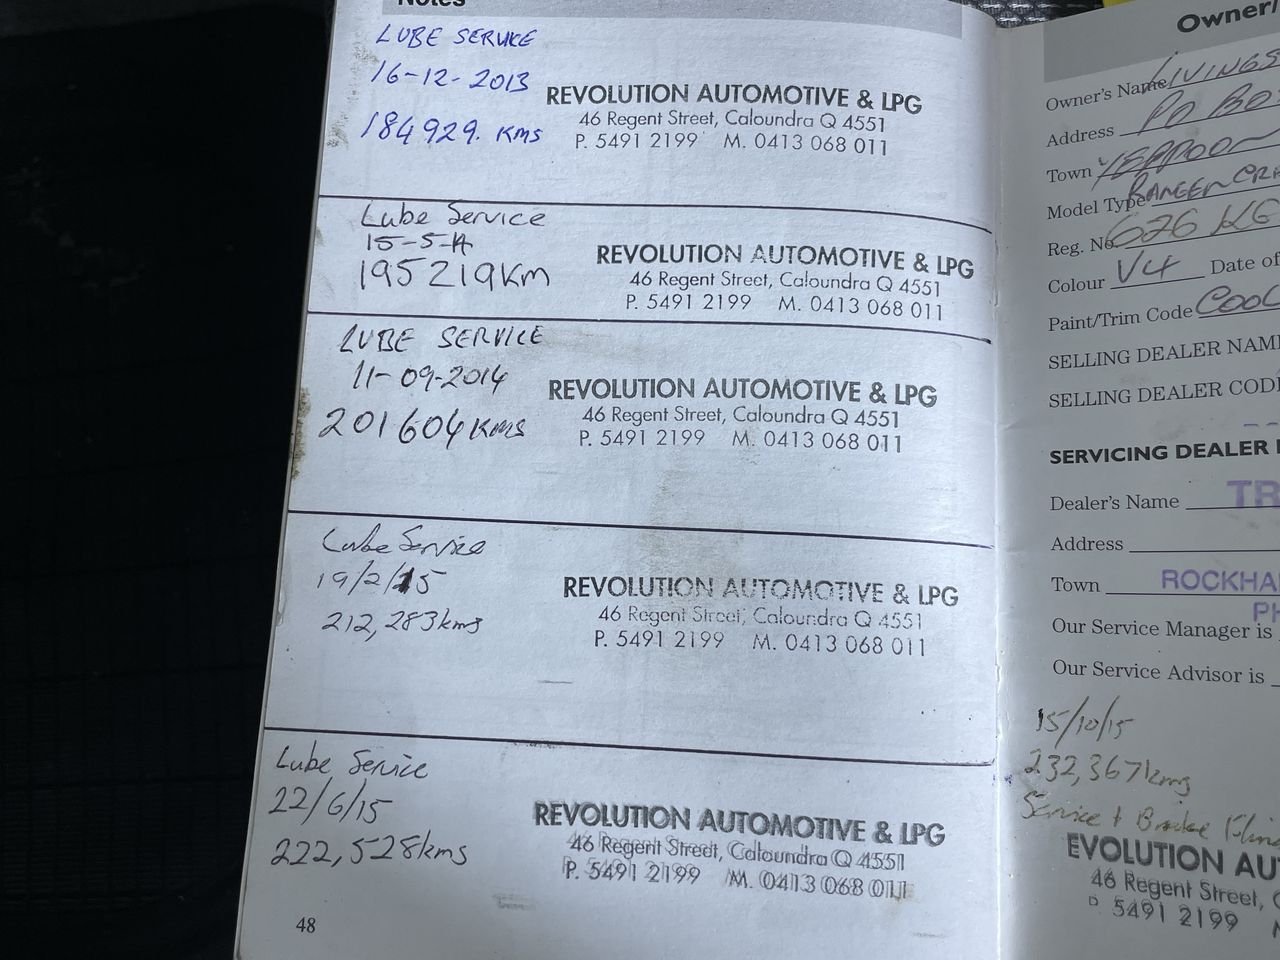 Notes
LUBE SERVICE
16-12-2013
184929. KMS
REVOLUTION AUTOMOTIVE & LPG
46 Regent Street, Caloundra Q 4551
P. 5491 2199 M. 0413 068 011
Lube Service
15-5-14
195219KM
REVOLUTION AUTOMOTIVE & LPG
46 Regent Street, Caloundra Q 4551
P. 5491 2199 M. 0413 068 011
LUBE SERVICE
11-09-2014
201604KMS
REVOLUTION AUTOMOTIVE & LPG
46 Regent Street, Caloundra Q 4551
P. 5491 2199 M. 0413 068 011
Lube Service
19/2/15
212,283kms
REVOLUTION AUTOMOTIVE & LPG
46 Regent Street, Caloundra Q 4551
P. 5491 2199 M. 0413 068 011
Lube Service
22/6/15
222,528kms
REVOLUTION AUTOMOTIVE & LPG
46 Regent Street, Caloundra Q 4551
P. 5491 2199 M. 0413 068 011
48
Owner/
Owner's Name LIVINGS
Address PO BO
Town YEPPOON
Model Type RANGER CR
Reg. No 626 KG
Colour V4 Date of
Paint/Trim Code COOL
SELLING DEALER NAM
SELLING DEALER COD
SERVICING DEALER
Dealer's Name TR
Address
Town ROCKHA
PH
Our Service Manager is
Our Service Advisor is
15/10/15
232,367kms
Service + Brake
EVOLUTION AU
46 Regent Street,
P. 5491 2199